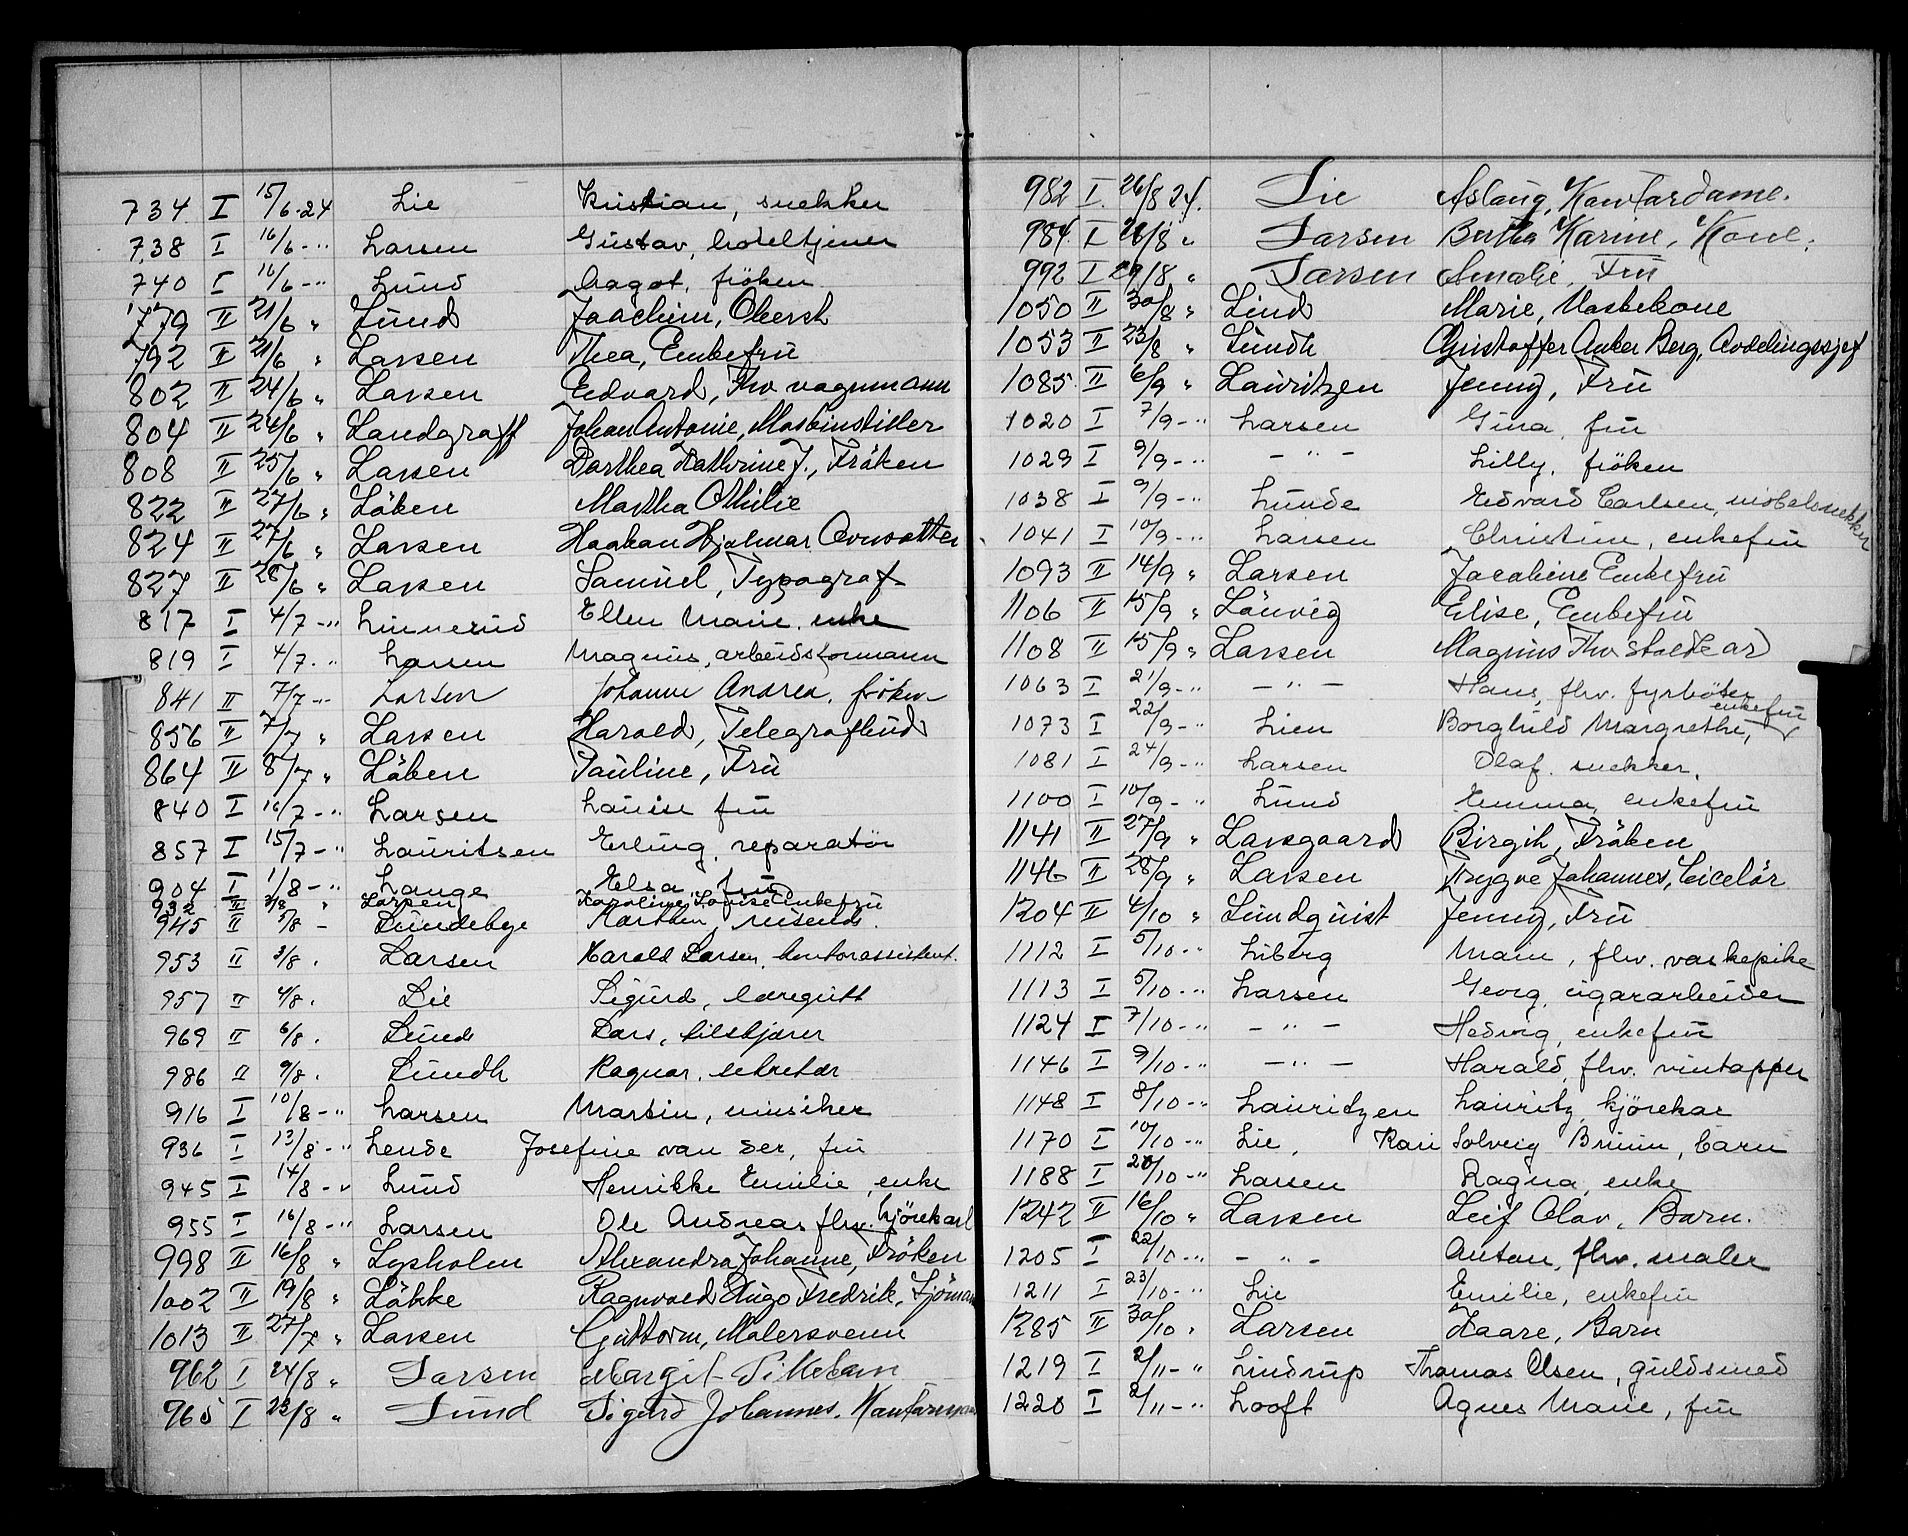 734 I 15/6-24 Lie Kristian, snekker
738 I 16/6 -" Larsen Gustav, hotelltjener
740 I 16/6 -" Lund Aagot, fröken
779 II 21/6 " Lund Joachim, Oberst
792 II 21/6 " Larsen Thea, Enkefru
802 II 24/6 " Larsen Edvard, Fhv vognmann
804 II 24/6 " Landgraff Johan Antonie, Maskinstiller
808 II 25/6 " Larsen Dorthea Kathrine J., Fröken
822 II 27/6 " Löken Martha Othilie
824 II 27/6 " Larsen Haakan Hjalmar
827 II 28/6 " Larsen Samuel, Typograf
817 I 4/7 -" Linnerud Ellen Marie, enke
819 I 4/7 -" Larsen Magnus, arbeidsformann
841 II 7/7 -" Larsen Johanne Andrea, fröken
856 II 7/7 " Larsen Harald, Telegrafbud
864 II 8/7 " Löken Pauline, Fru
840 I 16/7 -" Larsen Louise fru
857 I 15/7 -" Lauritsen Erling, reparatør
904 I 1/8 -" Lange Elsa, fru
932 II 2/8 " Larsen Karoline Lovise Enkefru
945 II 5/8 - Lundebye Karsten, reisende
953 II 3/8 . Larsen Harald Larsen, kontorassistent.
957 II 4/8 . Lie Sigurd, læregutt
969 II 6/8 . Lund Lars, bilskjører
986 II 9/8 . Lundh Ragnar, sekretær
916 I 10/8 -" Larsen Martin, musiker
936 I 13/8 -" Lende Josefine van der, fru
945 I 14/8 -" Lund Henrikke Emilie, enke
955 I 16/8 -" Larsen Ole Andreas fhv. kjörekarl
998 II 16/8 " Lysholm Alexandra Johanne, Fröken
1002 II 19/8 " Lökke Ragnvald Hugo Fredrik, Sjömann
1013 II 27/7 " Larsen Guttorm, Malersvenn
962 I 24/8 " Larsen Margit Pikebarn
965 I 23/8 " Lund Sigurd Johannes, Kontormann
982 I 26/8 24. Lie Aslaug, Kontordame.
984 I 26/8 " Larsen Bertha Karine, Kone.
992 I 29/8 " Larsen Amalie, Fru
1050 II 30/8 " Lind Marie, Vaskekone
1053 II 23/8 " Lundh Christoffer Anker Berg, Avdelingssjef
1085 II 6/9 " Lauritzen Jenny, Fru
1020 I 7/9 -" Larsen Gina, fru
1029 I 9/9 -" - " - Lilly, fröken
1038 I 9/9 -" Lunde Edvard Carlsen, möbelsnekker
1041 I 10/9 -" Larsen Christine, enkefru
1093 II 14/9 " Larsen Jacobine Enkefru
1106 II 15/9 " Lönvig Elise, Enkefru
1108 II 15/9 " Larsen Magnus Fhv. Staldkar
1063 I 21/9 -" - " - Hans, fhv. fyrböter
1073 I 22/9 -" Lien Borghild Margrethe, enkefru
1081 I 24/9 -" Larsen Olaf, snekker.
1100 I 10/9 -" Lund Emma, enkefru
1141 II 27/9 " Larsgaard Birgit, Fröken
1146 II 28/9 " Larsen Trygve Johannes, Ciselör
1204 II 4/10 " Lundquist Jenny, Fru
1112 I 5/10 -" Liberg Marie, fhv. vaskepike
1113 I 5/10 -" Larsen Georg, cigararbeider
1124 I 7/10 -" - " - Hedvig, enkefru
1146 I 9/10 -" - " - Harald, fhv. vintapper
1148 I 8/10 -" Lauritzen Lauritz, kjörekar
1170 I 10/10 -" Lie, Kari Solveig Bruun, barn
1188 I 20/10 -" Larsen Ragna, enke
1242 II 16/10 " Larsen Leif Olav, Barn.
1205 I 22/10 -" - " - Anton, fhv. maler
1211 I 23/10 -" Lie Emilie, enkefru
1285 II 30/10 " Larsen Kaare, Barn
1219 I 2/11 -" Lindrup Thomas Olsen, guldsmed
1220 I 2/11 -" Looft Agnes Marie, fru